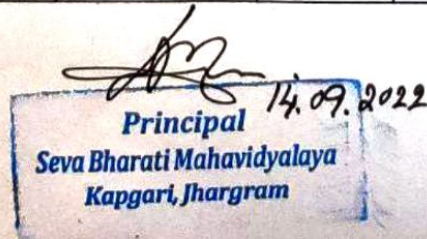 14.09.2022
Principal
Seva Bharati Mahavidyalaya
Kapgari, Jhargram